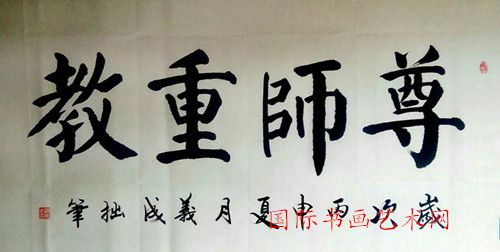 尊師重教
歲次丙申夏月義成拙筆
国际书画艺术网